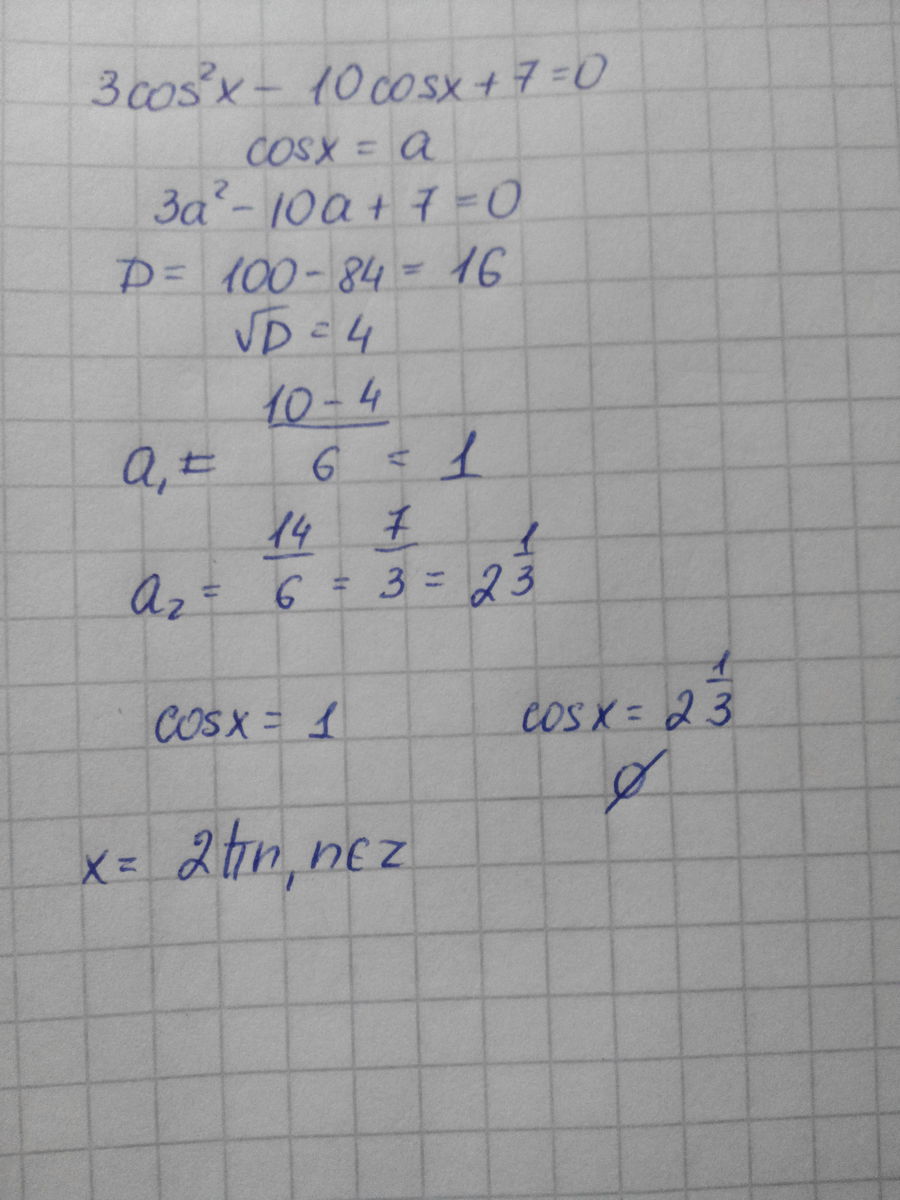 3cos²x - 10cosx + 7 = 0
cosx = a
3a² - 10a + 7 = 0
D = 100 - 84 = 16
√D = 4
a₁ = (10 - 4)/6 = 1
a₂ = 14/6 = 7/3 = 2 1/3
cosx = 1 cosx = 2 1/3
∅
x = 2πn, n∈z